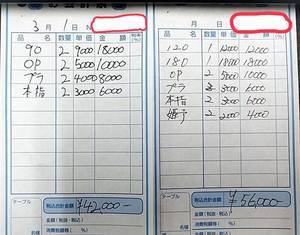 お会計票
3月1日 No.
品名 数量 単価 金額
90 2 9000 18000
OP 2 5000 10000
プラ 2 4000 8000
本指 2 3000 6000
テーブル 税込合計金額 ¥42,000-
金額(税抜・税込)
消費税額等
月 日 No.
品名 数量 単価 金額
120 1 12000 12000
180 1 18000 18000
OP 2 5000 10000
プラ 2 3000 6000
本指 2 3000 6000
姫予 2 2000 4000
テーブル 税込合計金額 ¥56,000-
金額(税抜・税込)
消費税額等